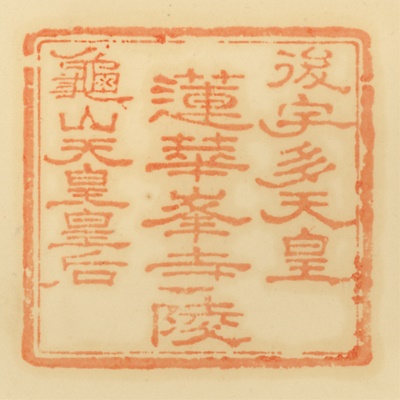 後宇多天皇
蓮華峯寺陵
龜山天皇皇后